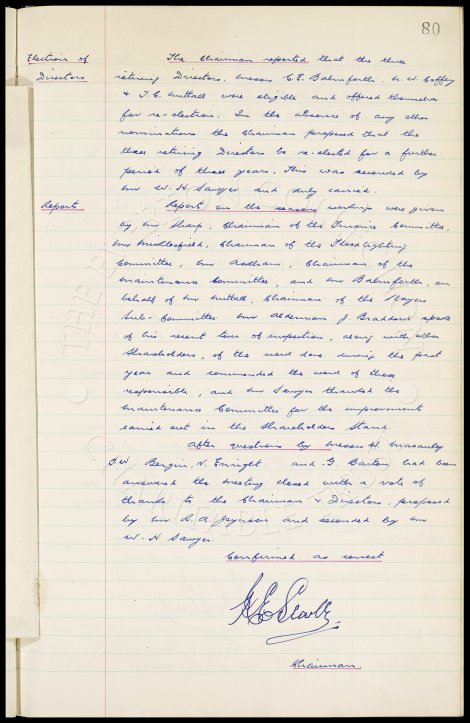 80
Election of The Chairman reported that the three
Directors retiring Directors, Messrs C.E. Balmforth, W. Coffey
& T.C. Nuttall were eligible and offered themselves
for re-election. In the absence of any other
nominations the Chairman proposed that the
three retiring Directors be re-elected for a further
period of three years. This was seconded by
Mr W. H. Sawyer and duly carried.
Reports Reports on the seasons workings were given
by Mr Sharp, Chairman of the Finance Committee,
Mr Micklesfield, Chairman of the Floodlighting
Committee, Mr Chairman of the
Maintenance Committee, and Mr Balmforth, on
behalf of Mr Nuttall, Chairman of the Players
Sub-Committee Mr Alderman J Braddock spoke
of his recent tour of inspection, along with other
Shareholders, of the work done during the past
year and commended the work of those
responsible, and Mr Sawyer thanked the
Maintenance Committee for the improvement
carried out in the Shareholders Stand.
After questions by Messrs H.
W. Bergin, V. Enright and G. Barton had been
answered the meeting closed with a vote of
thanks to the Chairman & Directors, proposed
by Mr R. A. Joynson and seconded by Mr
W. H. Sawyer.
Confirmed as correct
Chairman